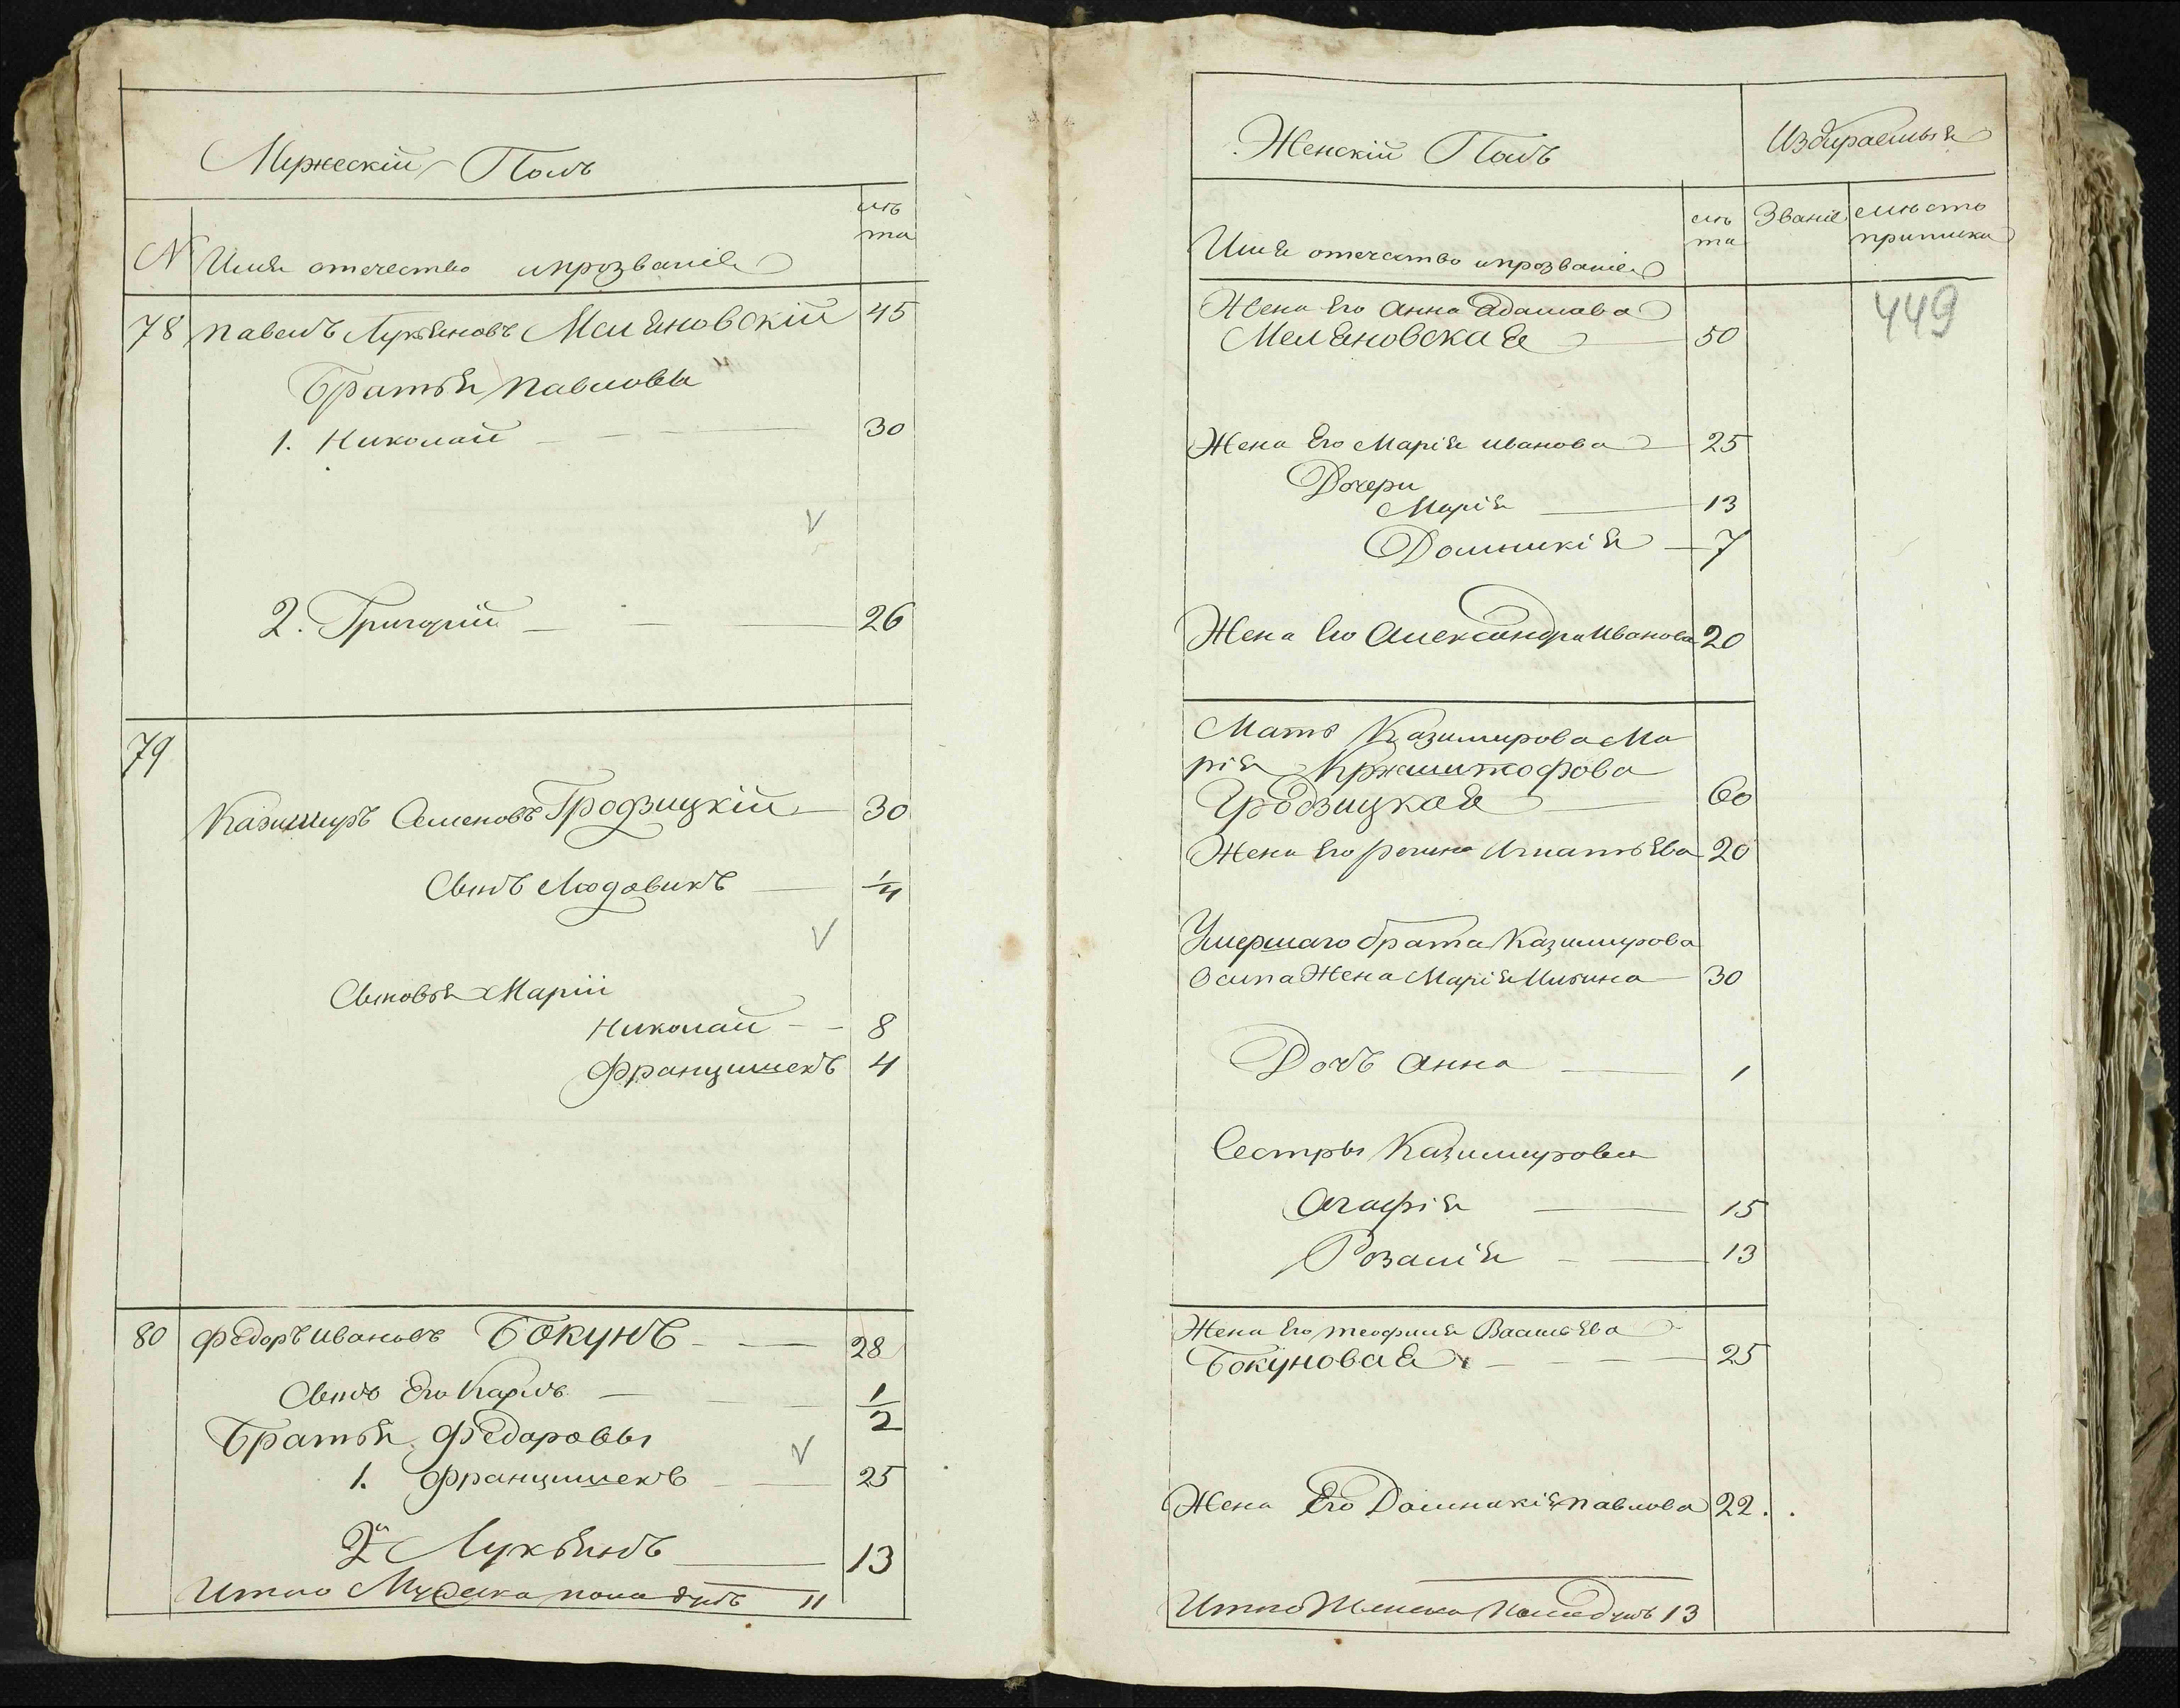 Мужескій Полъ
лѣ
та
N Имя отечество и прозваніе
78 павелъ Лукъяновъ Меляновскій 45
Братья Павловы
1. Николай 30
V
2. Григорій 26
79
Казимиръ Семеновъ Гродзицкій 30
Сынъ Людовикъ 1/4
V
Сыновья Маріи
Николай 8
Францишекъ 4
80 Федоръ Ивановъ Бокунъ 28
Сынъ Его Карлъ 1/2
Братья Федоровы
V
1. Францишекъ 25
2й Лукьянъ 13
Итого Мужеска пола душъ 11
Женскій Полъ
Избираемыя
Имя отечество и прозваніе
лѣ
та
Званіе
мѣсто
приписки
449
Жена Его Анна Адамова
Меляновская 50
Жена Его Марія Иванова 25
Дочери
Марія 13
Доминикія 7
Жена Его Александра Иванова 20
Мать Казимирова Ма
рія Кржиштофова
Гродзицкая 60
Жена Его Регина Игнатьева 20
Умершаго брата Казимирова
Осипа Жена Марія 30
Дочъ Анна 1
Сестры Казимировы
Агафія 15
Розалія 13
Жена Его теофиля Васильева
Бокуновая 25
Жена Его Доминикія павлова 22.
Итого Женска Пола душъ 13